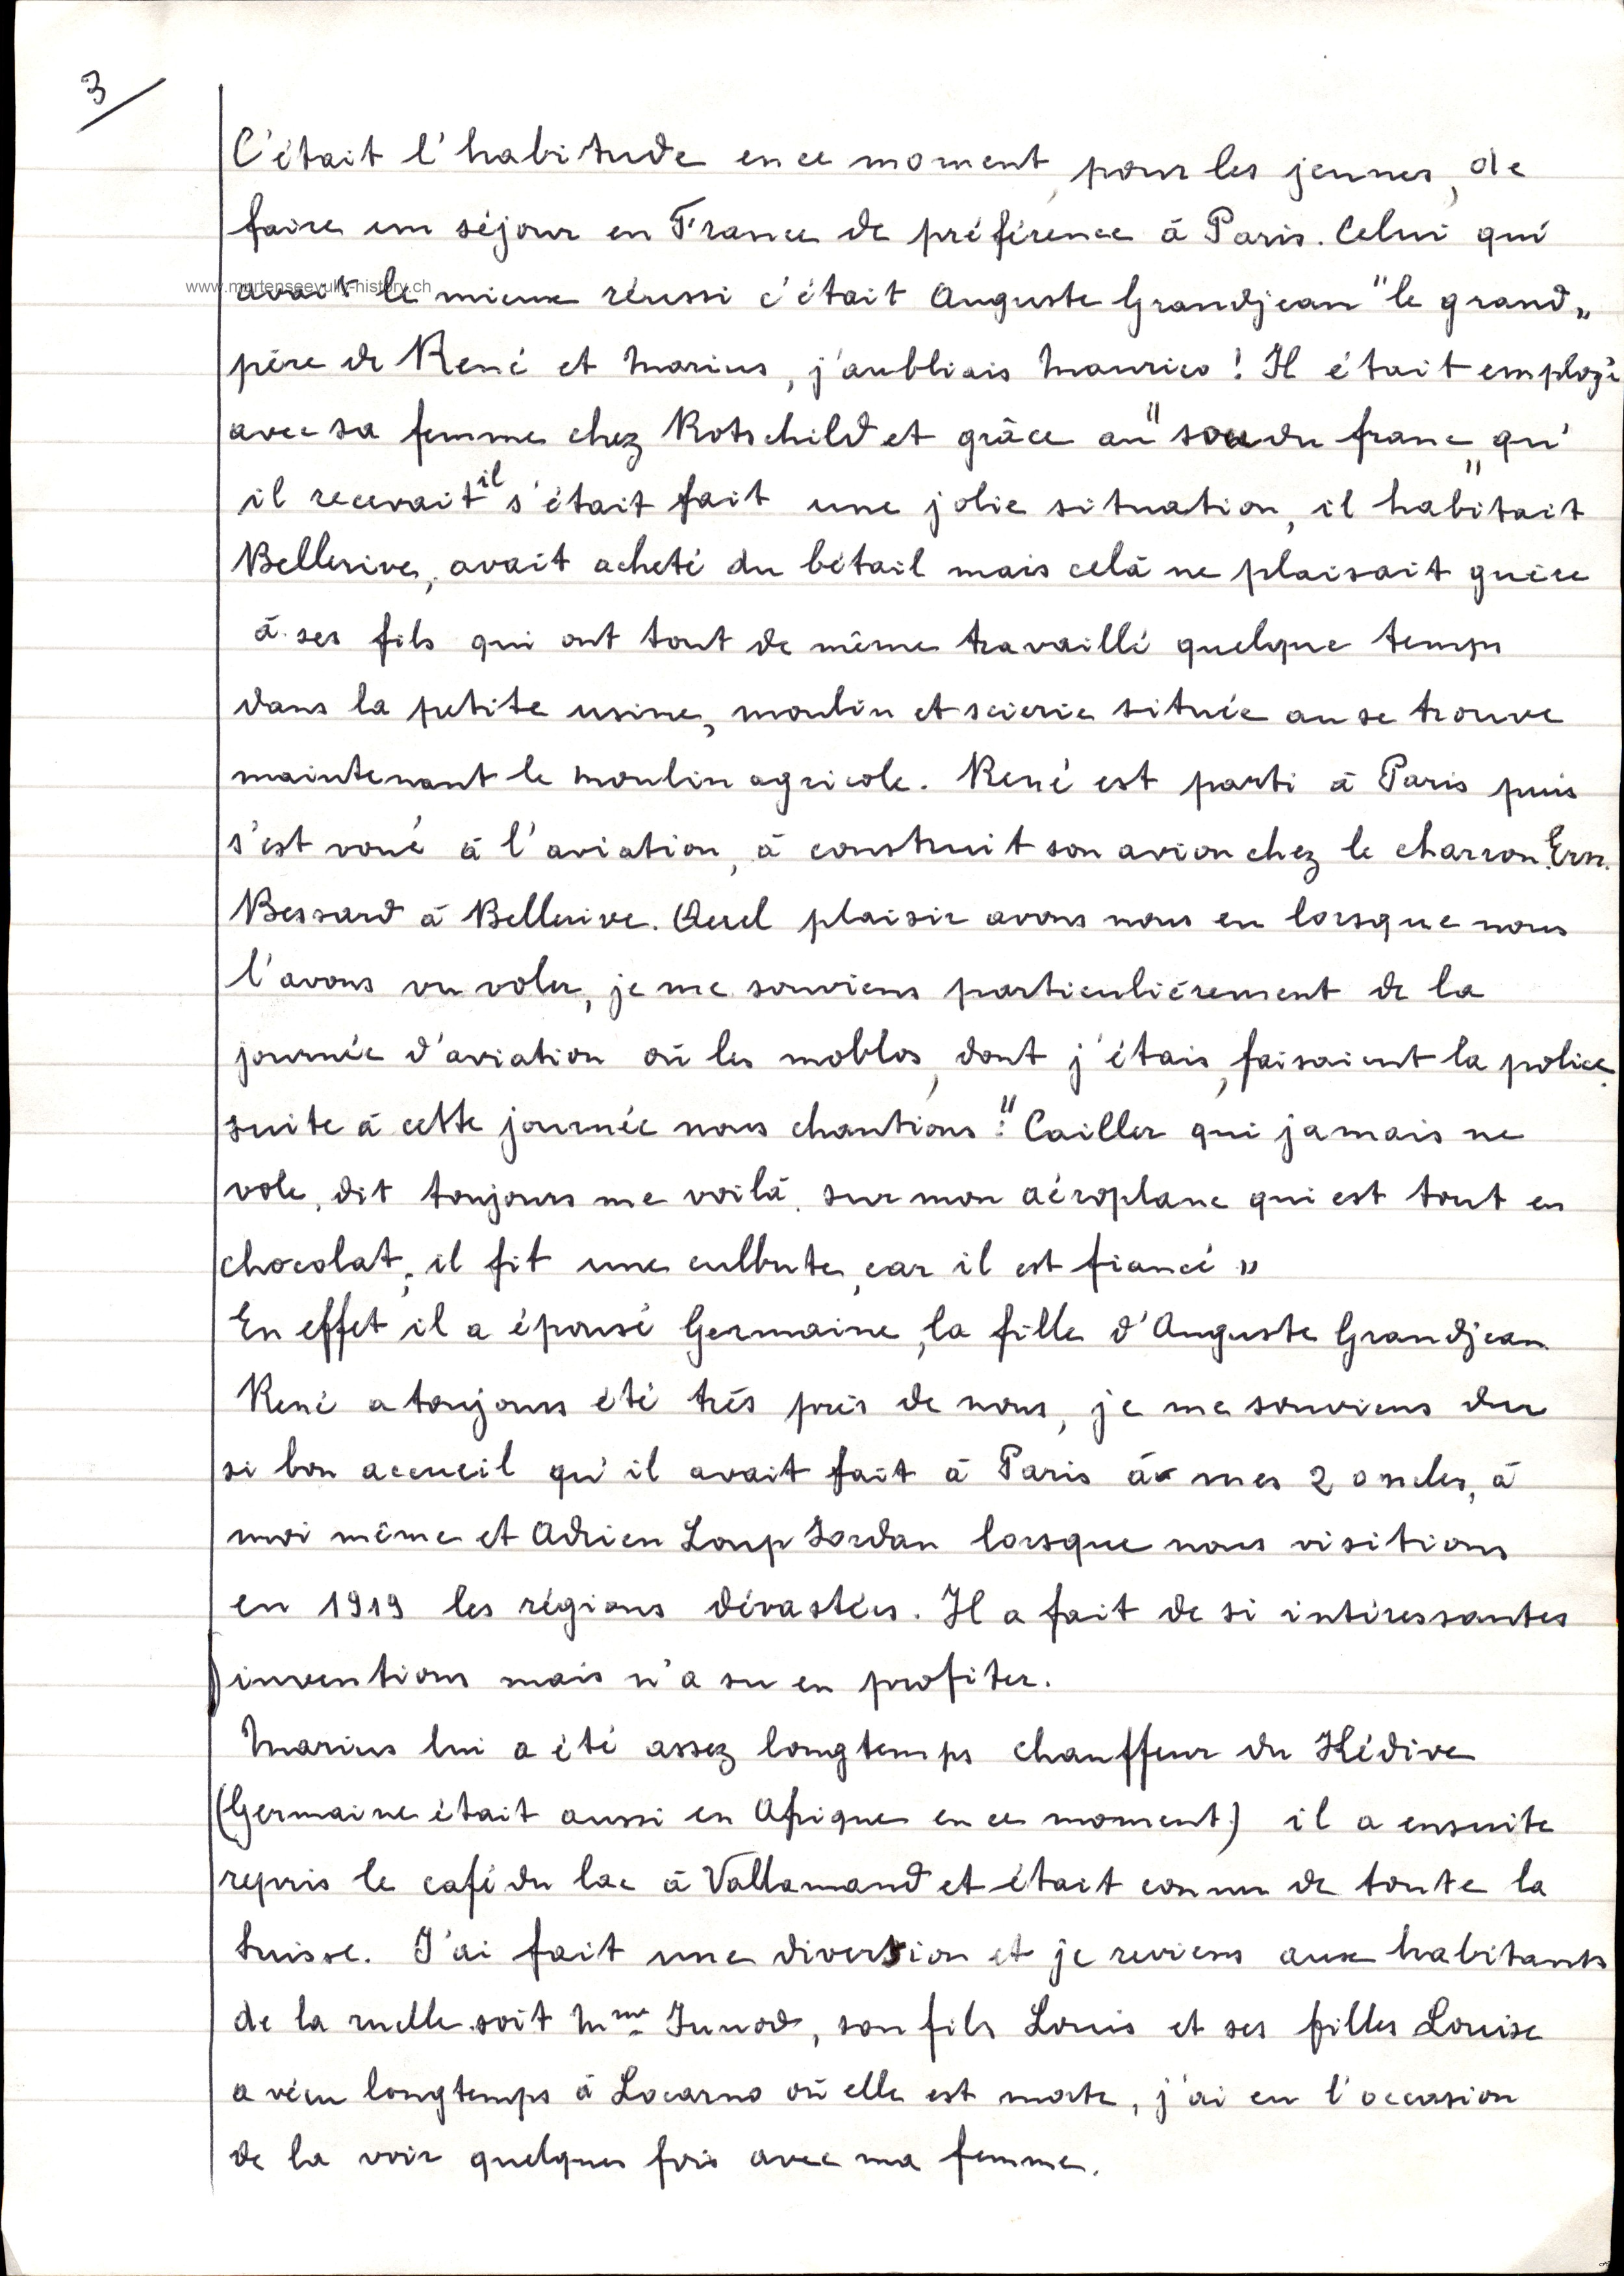 3
C'était l'habitude en ce moment, pour les jeunes, de
faire un séjour en France de préférence à Paris. Celui qui
www.murtenseevully-history.ch
avait le mieux réussi c'était Auguste Grandjean "le grand"
père de René et Marius, j'oubliais Maurice! Il était employé
avec sa femme chez Rotschild et grâce au "sou du franc" qu'
il recevait il s'était fait une jolie situation, il habitait
Bellerive, avait acheté du bétail mais celà ne plaisait guère
à ses fils qui ont tout de même travaillé quelque temps
dans la petite usine, moulin et scierie située ou se trouve
maintenant le moulin agricole. René est parti à Paris puis
s'est voué à l'aviation, à construit son avion chez le charron Ern.
Bessard à Bellerive. Quel plaisir avons nous eu lorsque nous
l'avons vu voler, je me souviens particulièrement de la
journée d'aviation où les moblos, dont j'étais, faisaient la police.
suite à cette journée nous chantions: "Cailler qui jamais ne
vole, dit toujours me voilà, sur mon aéroplane qui est tout en
chocolat, il fit une culbute, car il est fiancé"
En effet il a épousé Germaine, la fille d'Auguste Grandjean
René a toujours été très près de nous, je me souviens du
si bon accueil qu'il avait fait à Paris à mes 2 oncles, à
moi même et Adrien Loup Jordan lorsque nous visitions
en 1919 les régions dévastées. Il a fait de si intéressantes
inventions mais n'a su en profiter.
Marius lui a été assez longtemps chauffeur du Kédive
(Germaine était aussi en Afrique en ce moment) il a ensuite
repris le café du lac à Vallamand et était connu de toute la
Suisse. J'ai fait une diversion et je reviens aux habitants
de la ruelle soit Mme Junod, son fils Louis et ses filles Louise
a vécu longtemps à Locarno où elle est morte, j'ai eu l'occasion
de la voir quelques fois avec ma femme.